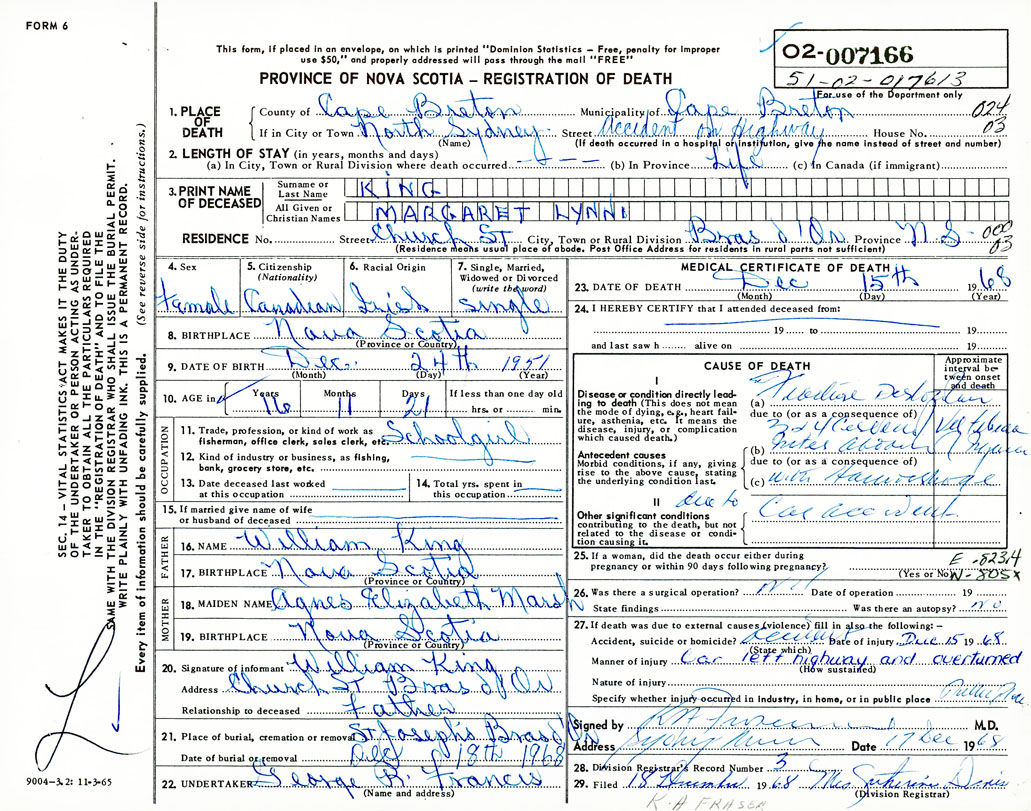 FORM 6
This form, if placed in an envelope, on which is printed "Dominion Statistics – Free, penalty for improper
use $50," and properly addressed will pass through the mail "FREE"
PROVINCE OF NOVA SCOTIA – REGISTRATION OF DEATH
O2-007166
51-02-017613
For use of the Department only
1. PLACE OF DEATH
County of Cape Breton Municipality of Cape Breton 024
If in City or Town North Sydney Street Accident on Highway House No. 03
(Name) (If death occurred in a hospital or institution, give the name instead of street and number)
2. LENGTH OF STAY (in years, months and days)
(a) In City, Town or Rural Division where death occurred (b) In Province Life (c) in Canada (if immigrant)
3. PRINT NAME OF DECEASED
Surname or Last Name KING
All Given or Christian Names MARGARET LYNN
RESIDENCE No. Street Church St City, Town or Rural Division Bras d'Or Province N.S. 000
(Residence means usual place of abode. Post Office Address for residents in rural parts not sufficient) 03
4. Sex Female
5. Citizenship (Nationality) Canadian
6. Racial Origin Irish
7. Single, Married, Widowed or Divorced (write the word) Single
8. BIRTHPLACE Nova Scotia
(Province or Country)
9. DATE OF BIRTH Dec. 24th 1951
(Month) (Day) (Year)
10. AGE in Years 16 Months 11 Days 21 If less than one day old hrs. or min.
OCCUPATION
11. Trade, profession, or kind of work as fisherman, office clerk, sales clerk, etc. Schoolgirl
12. Kind of industry or business, as fishing, bank, grocery store, etc.
13. Date deceased last worked at this occupation
14. Total yrs. spent in this occupation
15. If married give name of wife or husband of deceased
FATHER
16. NAME William King
17. BIRTHPLACE Nova Scotia
(Province or Country)
MOTHER
18. MAIDEN NAME Agnes Elizabeth Marsh
19. BIRTHPLACE Nova Scotia
(Province or Country)
20. Signature of informant William King
Address Church St Bras d'Or
Relationship to deceased Father
21. Place of burial, cremation or removal St Joseph's Bras d'Or
Date of burial or removal Dec 18th 1968
22. UNDERTAKER George R. Francis
(Name and address)
MEDICAL CERTIFICATE OF DEATH
23. DATE OF DEATH Dec 15th 1968
(Month) (Day) (Year)
24. I HEREBY CERTIFY that I attended deceased from:
19 to 19
and last saw h alive on 19
CAUSE OF DEATH
Approximate interval between onset and death
I
Disease or condition directly leading to death (This does not mean the mode of dying, e.g., heart failure, asthenia, etc. It means the disease, injury, or complication which caused death.)
(a)
due to (or as a consequence of)
(b)
Antecedent causes
Morbid conditions, if any, giving rise to the above cause, stating the underlying condition last.
due to (or as a consequence of)
(c) with Hemorrhage
II due to
Other significant conditions contributing to the death, but not related to the disease or condition causing it.
Car accident
25. If a woman, did the death occur either during pregnancy or within 90 days following pregnancy?
(Yes or No)
E-823.4
N-805X
26. Was there a surgical operation? No Date of operation 19
State findings Was there an autopsy? no
27. If death was due to external causes (violence) fill in also the following: –
Accident, suicide or homicide? Accident Date of injury Dec 15 1968
(State which)
Manner of injury Car left highway and overturned
(How sustained)
Nature of injury
Specify whether injury occurred in Industry, in home, or in public place
Signed by M.D.
Address Sydney Mines Date 17 Dec 1968
28. Division Registrar's Record Number 3
29. Filed 18 1968
(Division Registrar)
K.A FRASER
SEC. 14 – VITAL STATISTICS ACT MAKES IT THE DUTY
OF THE UNDERTAKER OR PERSON ACTING AS UNDER-
TAKER TO OBTAIN ALL THE PARTICULARS REQUIRED
IN THE "REGISTRATION OF DEATH" AND TO FILE THE
SAME WITH THE DIVISION REGISTRAR WHO SHALL ISSUE THE BURIAL PERMIT.
WRITE PLAINLY WITH UNFADING INK. THIS IS A PERMANENT RECORD.
Every item of information should be carefully supplied. (See reverse side for instructions.)
9004-3.2: 11-3-65